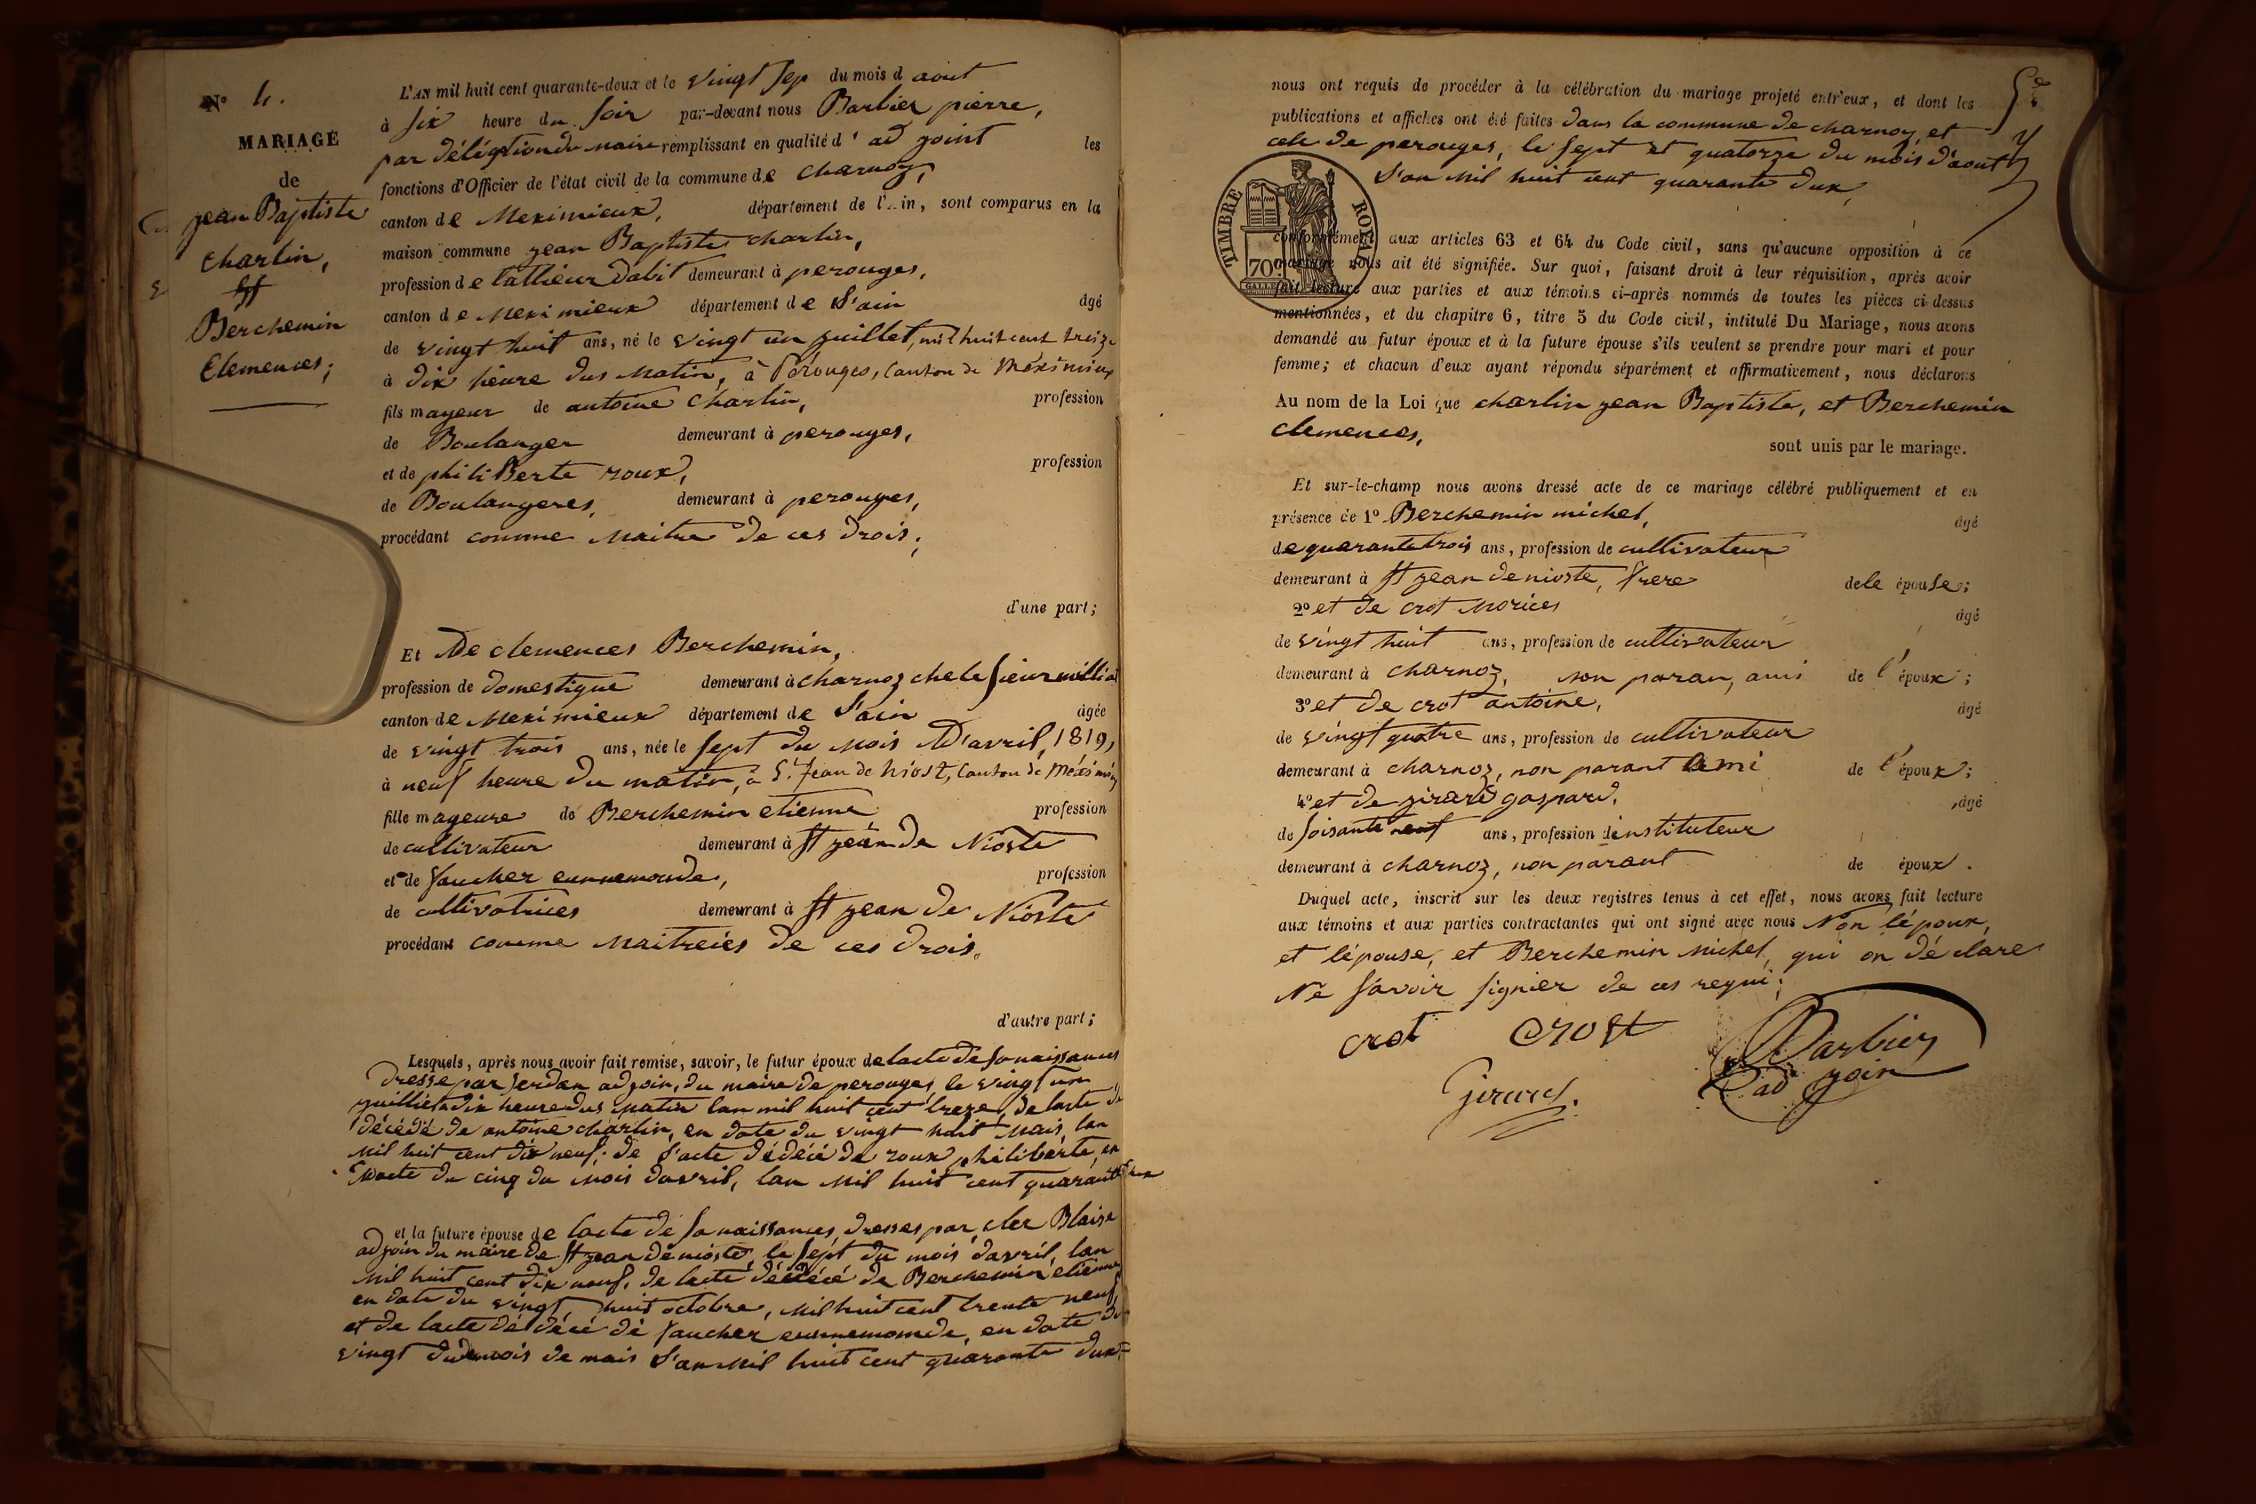 N° 4.
MARIAGE
de
jean Baptiste
charlin,
et
Berchemin
Clemences,
L'AN mil huit cent quarante-deux et le vingt sep du mois d aout
à six heure du soir par-devant nous Barbier pierre,
par déléqtion du maire remplissant en qualité d' ad joint les
fonctions d'Officier de l'état civil de la commune de charnoz,
canton de Meximieux, département de l'Ain, sont comparus en la
maison commune jean Baptiste charlin,
profession de tallieur dabit demeurant à perouges,
canton de Meximieux département de l'ain âgé
de vingt huit ans, né le vingt un juillet, mil huit cent treize
à dix heure dus matin, à Pérouges, Canton de Méximieux
fils mayeur de antoine charlin, profession
de Boulanger demeurant à perouges,
et de philiBerte roux, profession
de Boulangeres, demeurant à perouges,
procédant comme Maitre de ces drois,
d'une part;
Et De clemences Berchemin,
profession de domestique demeurant à charnoz che le sieur milliat
canton de Meximieux département de l'ain âgée
de vingt trois ans, née le sept du mois D'avril, 1819,
à neuf heure du matin, à St. Jean de Niost, Canton de Méximieux
fille mayeure de Berchemin etienne profession
de cultivateur demeurant à st jean de Nioste
et de faucher eunnemonde, profession
de cultivatrices demeurant à st jean de Nioste
procédant comme Maitreies de ces drois.
d'autre part;
Lesquels, après nous avoir fait remise, savoir, le futur époux de lacte de sa naissances
dresse par jerdan adjoin, du maire de perouges, le vingt un
juilliet a dix heure dus matin lan mil huit cent treze, de lacte de
décédé de antoine charlin, en date du vingt huit Mais, lan
mil huit cent dix neuf; de l'acte dédécé de roux philiberte, en
dacte du cinq du mois davril, lan mil huit cent quarante
et la future épouse de lacte de sa naissances, dresses par cler Blaise
adjoin du maire de st jean de nioste, le sept du mois davril, lan
mil huit cent dix neuf, de lacte dédécé de Berchemin etienne
en date du vingt huit octobre, mil huit cent trente neuf,
et de lacte dé décé dé faucher eunnemonde, en date du
vingt du mois de mais l'an mil huit cent quarante dux
nous ont requis de procéder à la célébration du mariage projeté entr'eux, et dont les
publications et affiches ont été faites dans la commune de charnoz, et
cele de perouges, le sept et quatorze du mois d'aout
l'an mil huit cent quarante dux,
TIMBRE ROYAL
70c
conformément aux articles 63 et 64 du Code civil, sans qu'aucune opposition à ce
mariage nous ait été signifiée. Sur quoi, faisant droit à leur réquisition, après avoir
fait lecture aux parties et aux témoins ci-après nommés de toutes les pièces ci-dessus
mentionnées, et du chapitre 6, titre 5 du Code civil, intitulé Du Mariage, nous avons
demandé au futur époux et à la future épouse s'ils veulent se prendre pour mari et pour
femme; et chacun d'eux ayant répondu séparément et affirmativement, nous déclarons
Au nom de la Loi que charlin jean Baptiste, et Berchemin
clemences, sont unis par le mariage.
Et sur-le-champ nous avons dressé acte de ce mariage célébré publiquement et en
présence de 1° Berchemin michel, âgé
de quarante trois ans, profession de cultivateur
demeurant à st jean de nioste, frere de le épouse;
2° et de crot Morices âgé
de vingt huit ans, profession de cultivateur
demeurant à charnoz, non paran, ami de l'époux;
3° et de crot antoine, âgé
de vingt quatre ans, profession de cultivateur
demeurant à charnoz, non parant ami de l'époux;
4° et de girard gaspard, âgé
de soisante neuf ans, profession d'instituteur
demeurant à charnoz, non parant de époux.
Duquel acte, inscrit sur les deux registres tenus à cet effet, nous avons fait lecture
aux témoins et aux parties contractantes qui ont signé avec nous Non lépoux,
et lépouse, et Berchemin Michel, qui on déclare
Ne savoir signier de ces requi;
crot crost Barbier
Girard. ad join